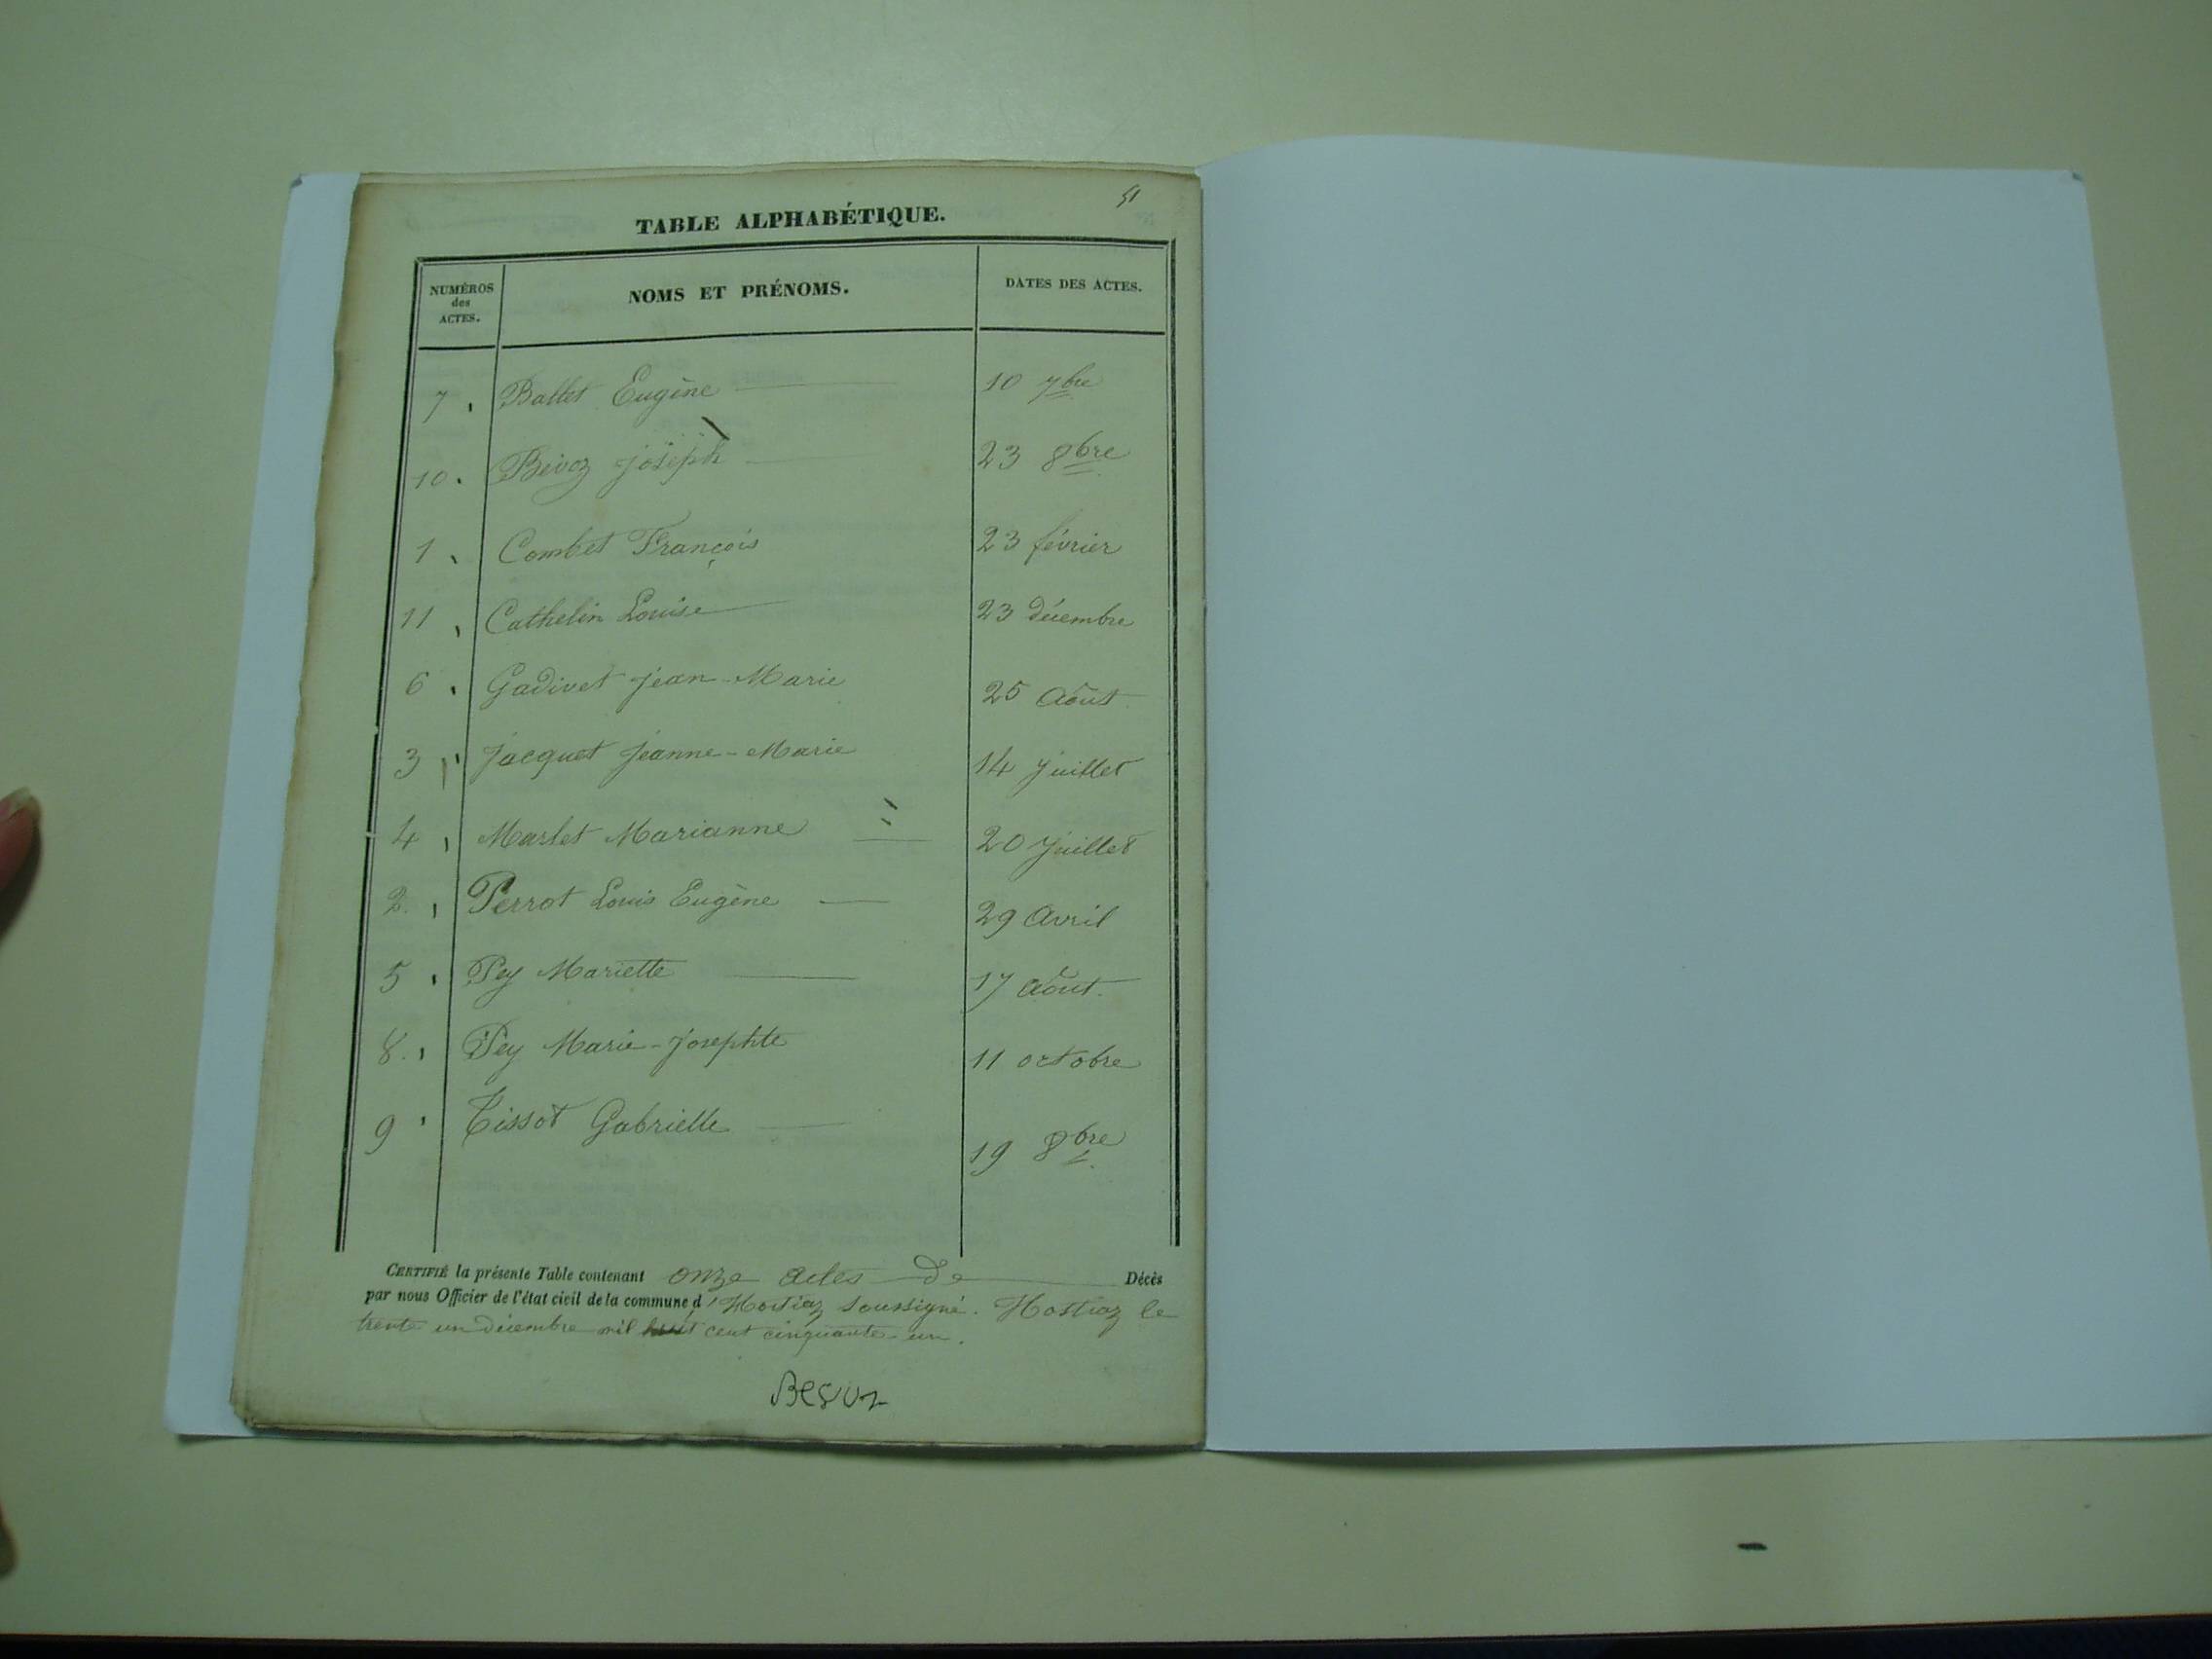 51
TABLE ALPHABÉTIQUE.
NUMÉROS des ACTES. NOMS ET PRÉNOMS. DATES DES ACTES.
7 Ballet Eugène 10 7bre
10. Bévoz joseph 23 8bre
1 Combet François 23 février
11 Cathelin Louise 23 décembre
6 Gadivet jean-Marie 25 Août
3 Jacquet jeanne-Marie 14 juillet
4 Marlet Marianne 20 juillet
2. Perrot Louis Eugène 29 Avril
5 Pey Mariette 17 Août.
8. Pey Marie-josephte 11 octobre
9 Tissot Gabrielle 19 8bre
CERTIFIÉ la présente Table contenant onze actes de Décès
par nous Officier de l'état civil de la commune d'Hostiaz soussigné. Hostiaz le
trente un décembre mil huit cent cinquante-un.